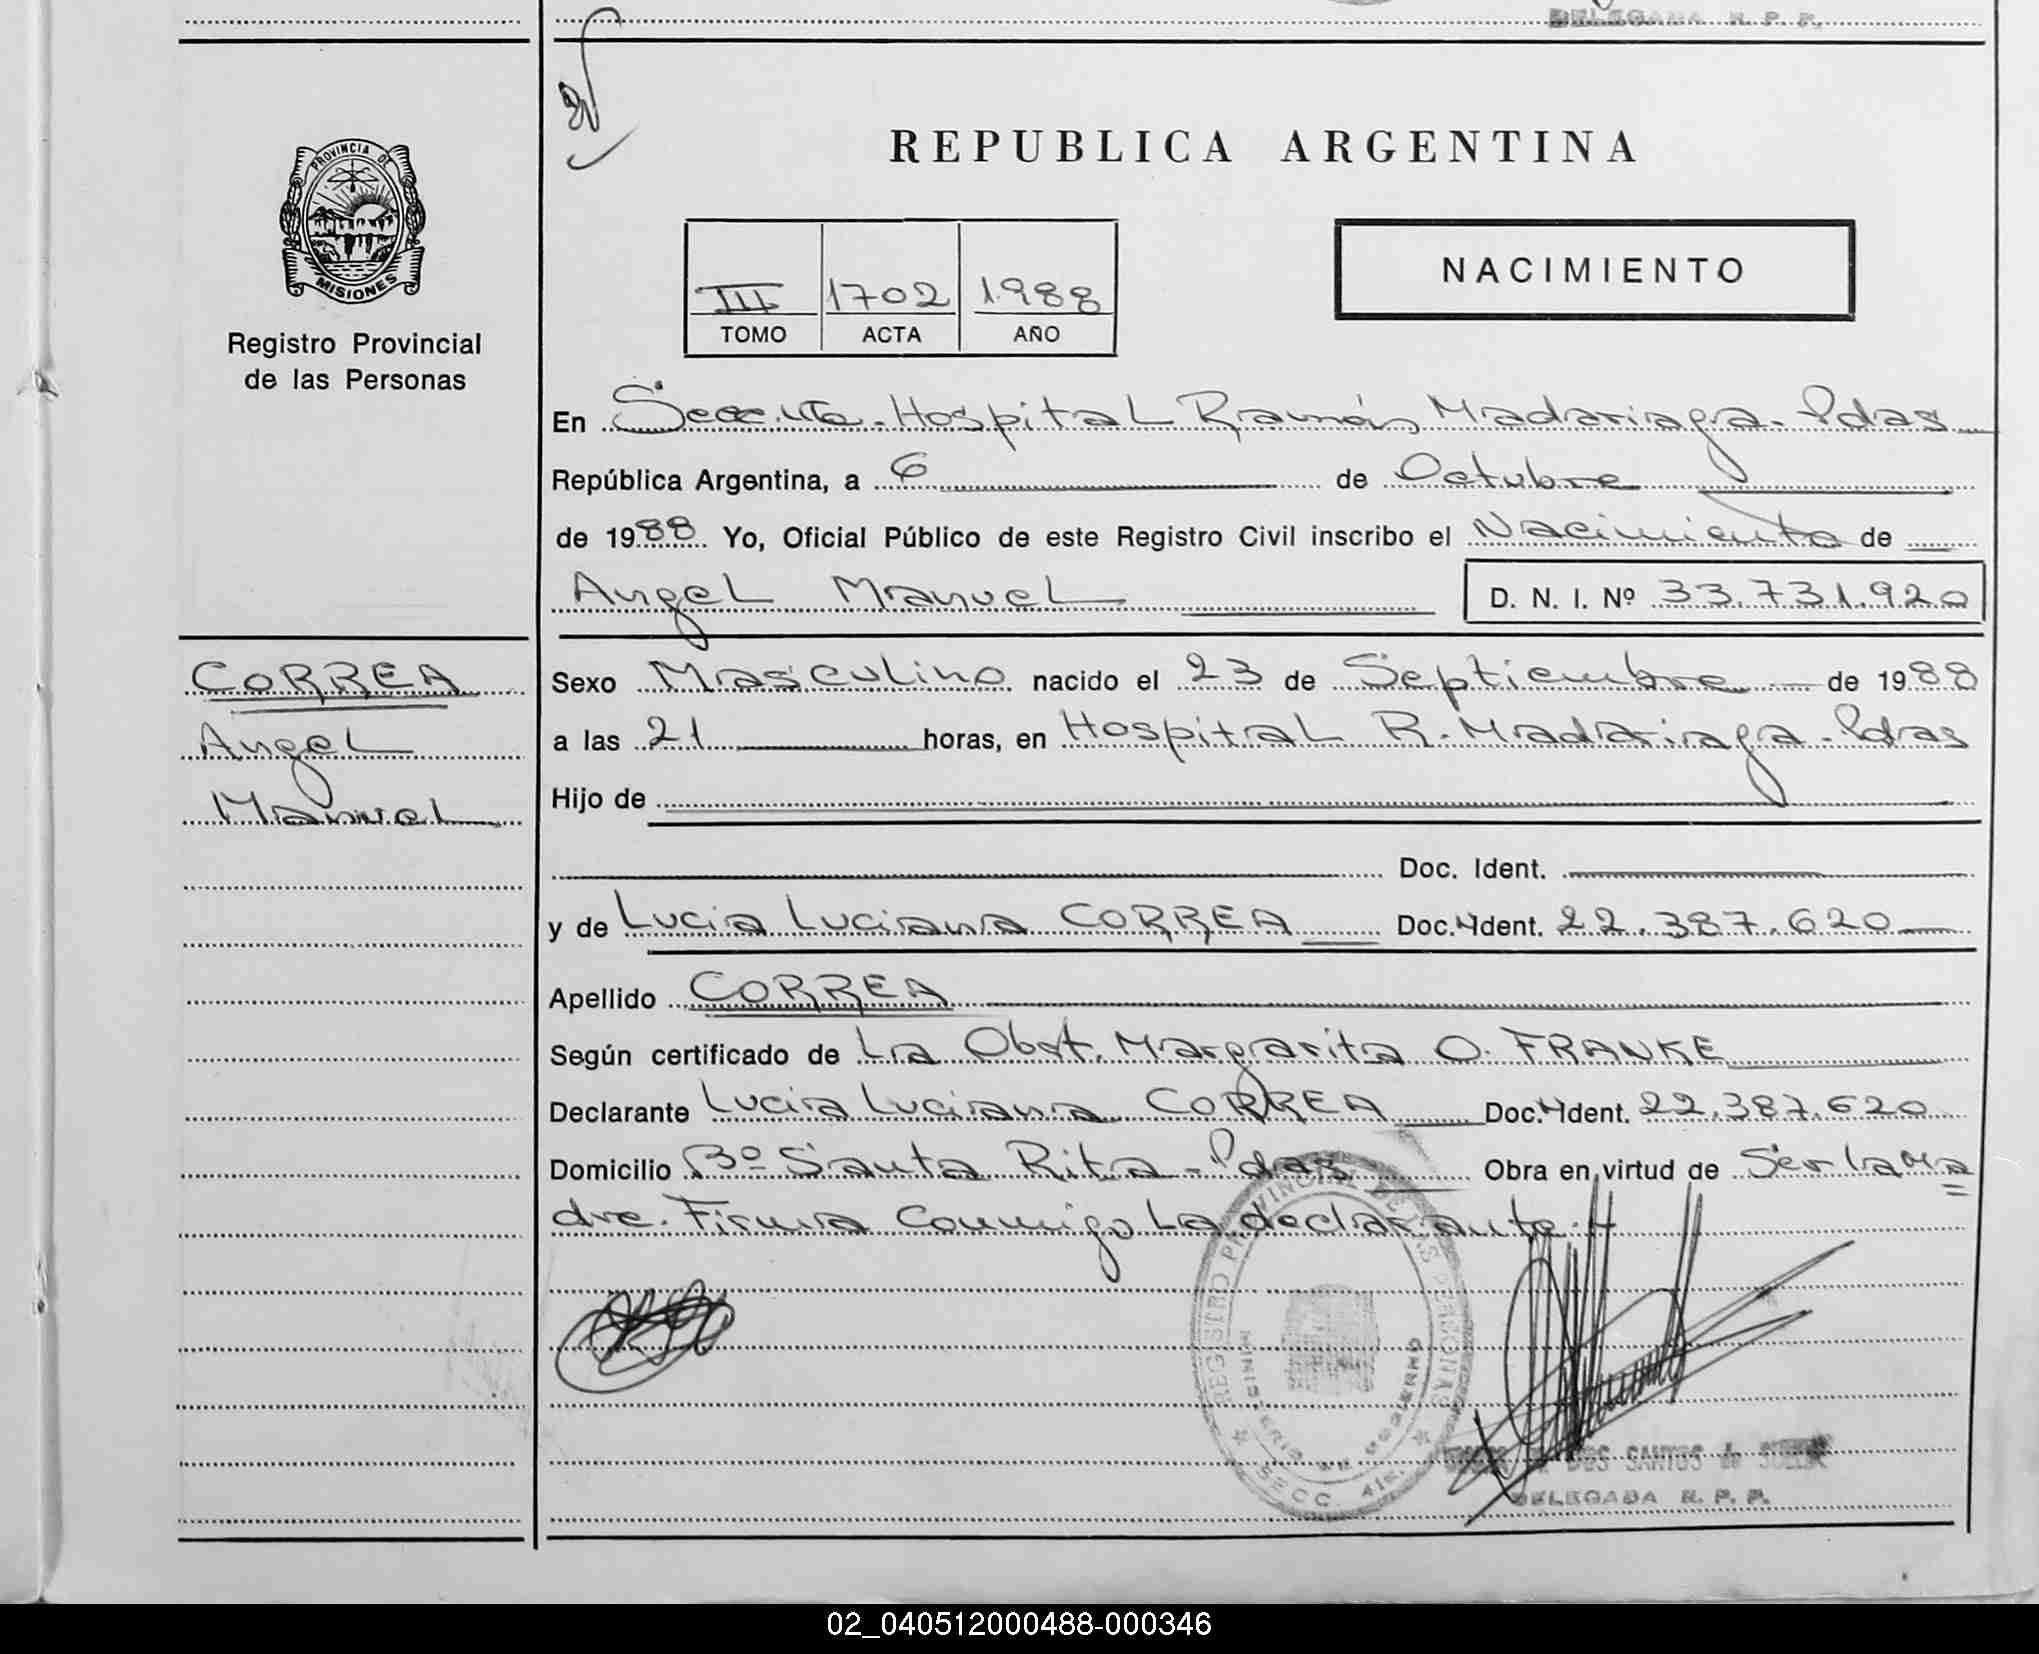 DELEGADA R. P. P.
PROVINCIA DE
MISIONES
Registro Provincial
de las Personas
REPUBLICA ARGENTINA
III 1702 1988
TOMO ACTA AÑO
NACIMIENTO
En Secc. Hospital Ramón Madariaga - Pdas
República Argentina, a 6 de Octubre
de 1988 Yo, Oficial Público de este Registro Civil inscribo el Nacimiento de
Angel Manuel D. N. I. Nº 33.731.920
CORREA
Angel
Manuel
Sexo Masculino nacido el 23 de Septiembre de 1988
a las 21 horas, en Hospital R. Madariaga - Pdas
Hijo de
Doc. Ident.
y de Lucia Luciana CORREA Doc. Ident. 22.387.620
Apellido CORREA
Según certificado de La Obst. Margarita O. FRANKE
Declarante Lucia Luciana CORREA Doc. Ident. 22.387.620
Domicilio Bº Santa Rita - Pdas Obra en virtud de Ser la ma=
dre. Firma Conmigo La declarante.-
REGISTRO PROVINCIAL DE LAS PERSONAS
MINISTERIO DE GOBIERNO
SECC.
DOS SANTOS de
DELEGADA R. P. P.
02_040512000488-000346